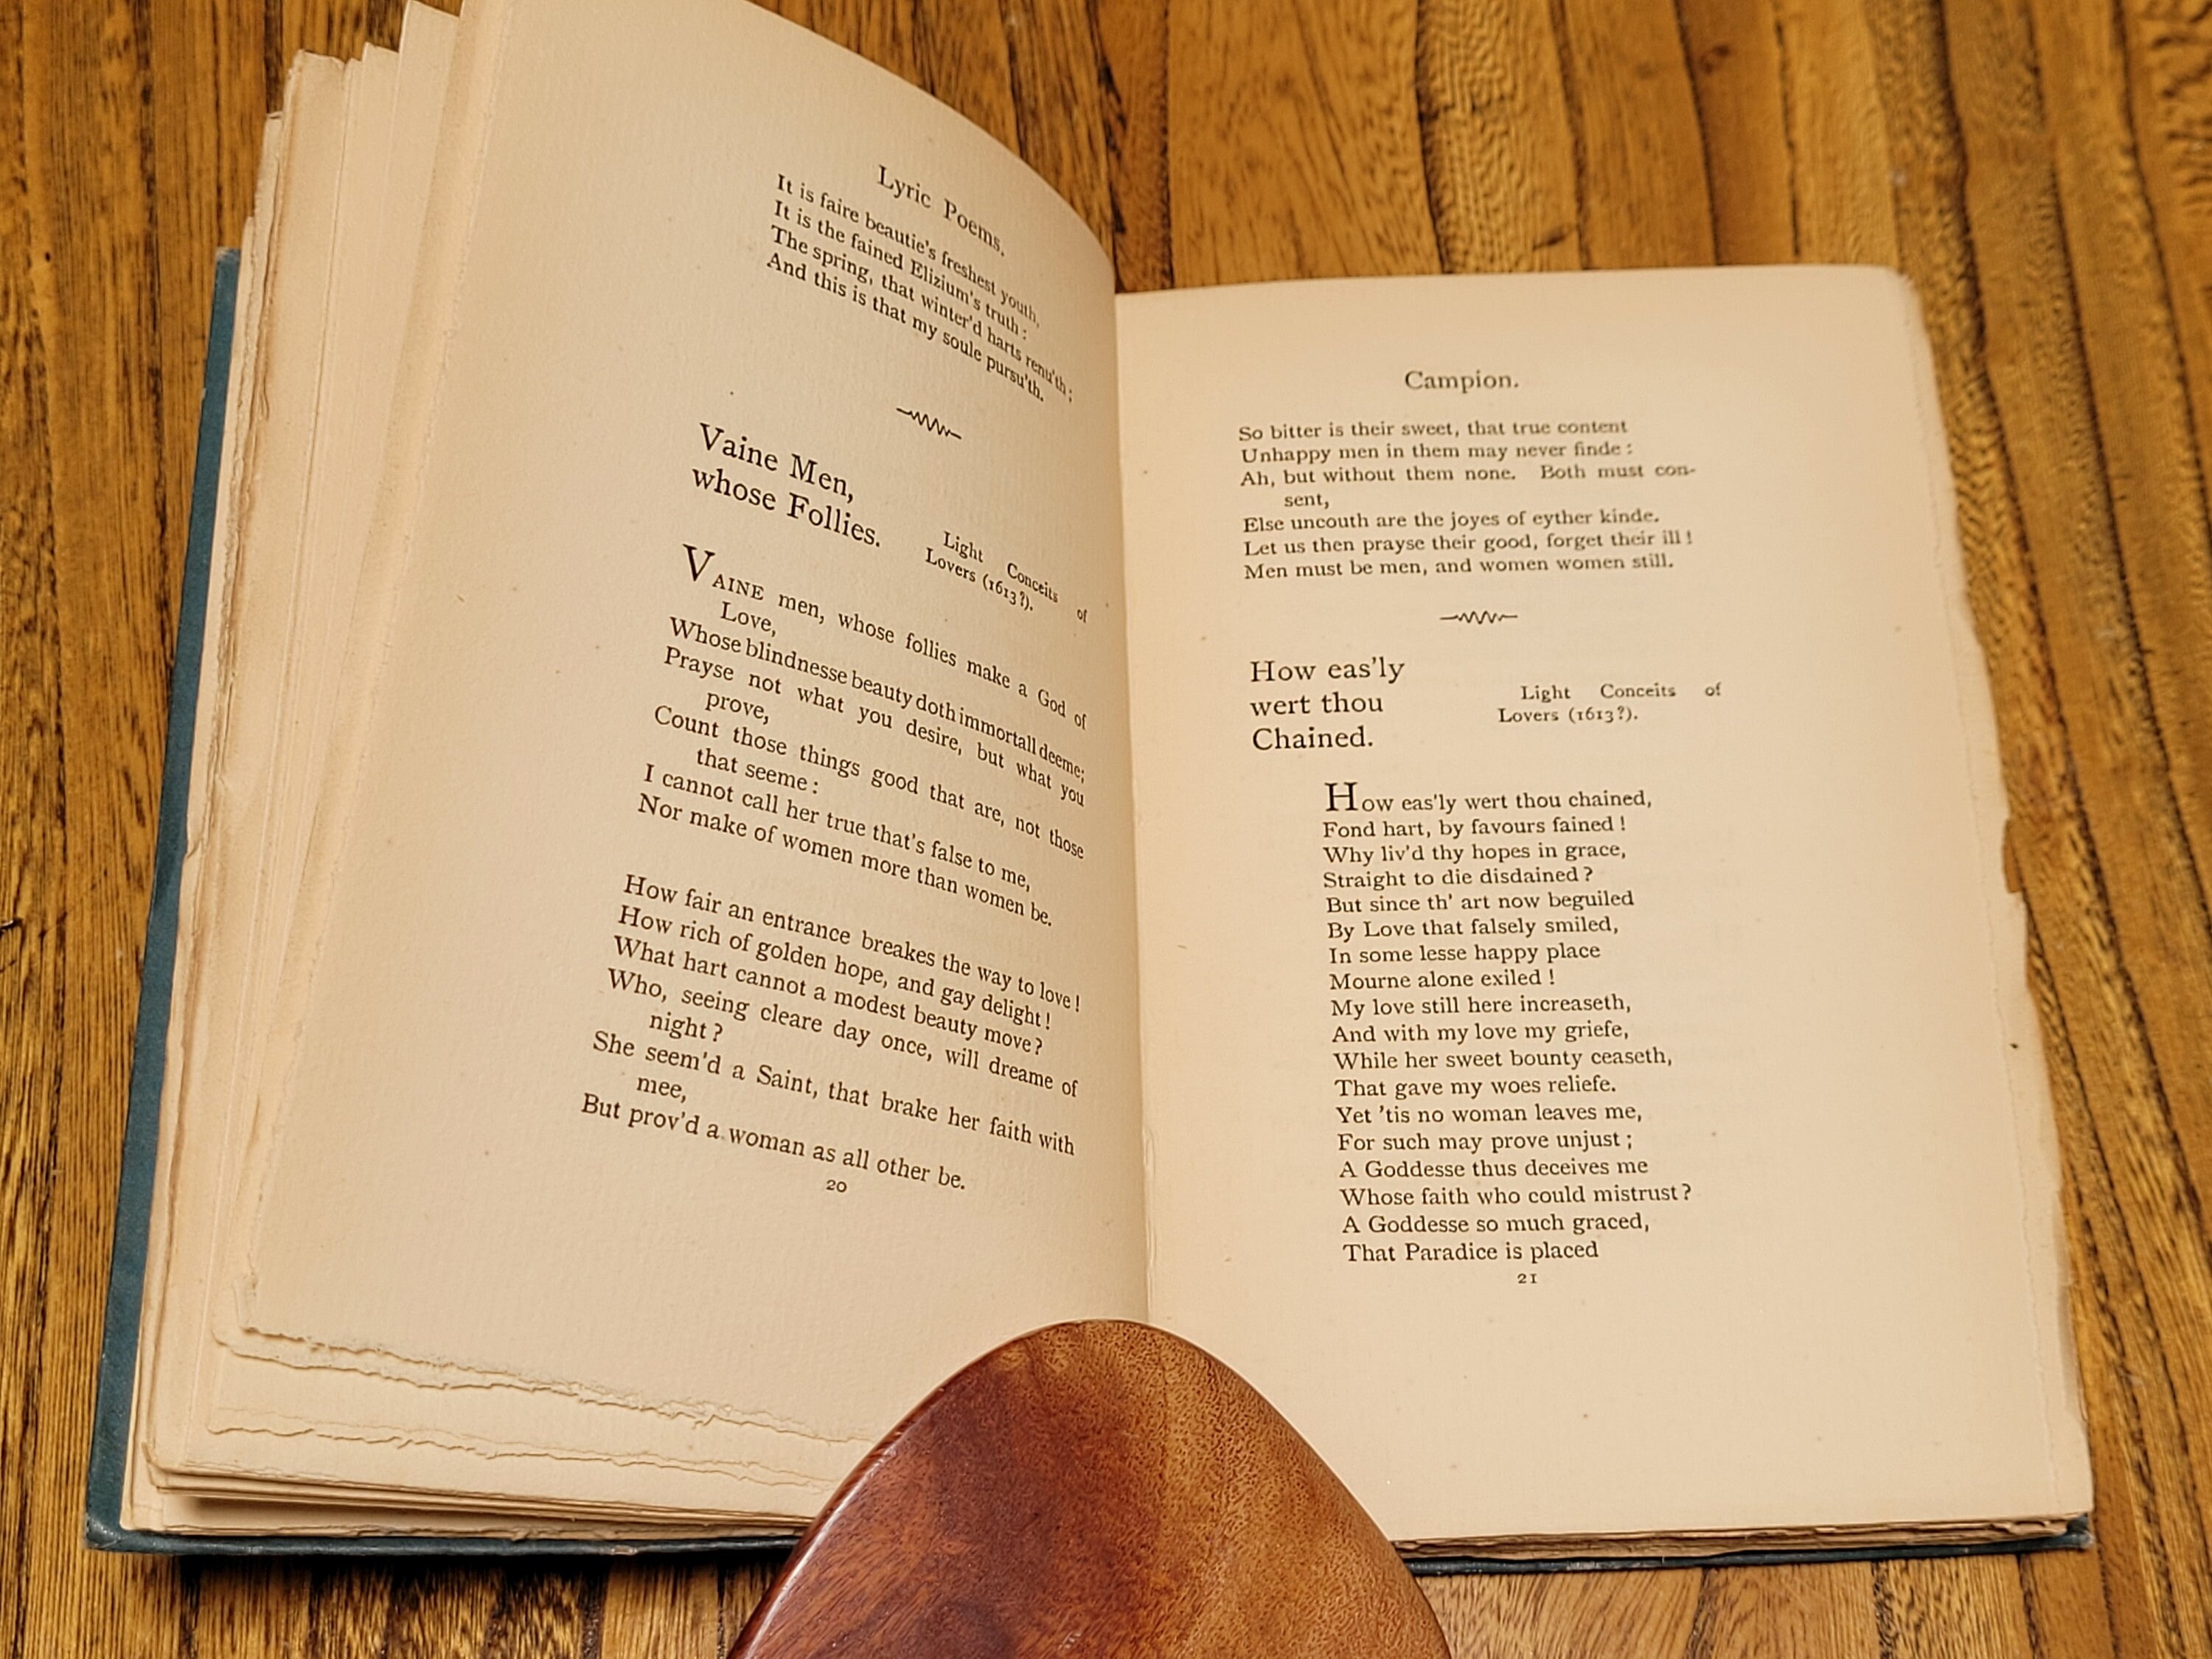 Lyric Poems.
It is faire beautie's freshest youth,
It is the fained Elizium's truth :
The spring, that winter'd harts renu'th ;
And this is that my soule pursu'th.
Vaine Men,
whose Follies.
Light Conceits of
Lovers (1613?).
VAINE men, whose follies make a God of
Love,
Whose blindnesse beauty doth immortall deeme;
Prayse not what you desire, but what you
prove,
Count those things good that are, not those
that seeme :
I cannot call her true that's false to me,
Nor make of women more than women be.
How fair an entrance breakes the way to love !
How rich of golden hope, and gay delight !
What hart cannot a modest beauty move ?
Who, seeing cleare day once, will dreame of
night ?
She seem'd a Saint, that brake her faith with
mee,
But prov'd a woman as all other be.
20
Campion.
So bitter is their sweet, that true content
Unhappy men in them may never finde :
Ah, but without them none. Both must con-
sent,
Else uncouth are the joyes of eyther kinde.
Let us then prayse their good, forget their ill !
Men must be men, and women women still.
How eas'ly
wert thou
Chained.
Light Conceits of
Lovers (1613?).
How eas'ly wert thou chained,
Fond hart, by favours fained !
Why liv'd thy hopes in grace,
Straight to die disdained ?
But since th' art now beguiled
By Love that falsely smiled,
In some lesse happy place
Mourne alone exiled !
My love still here increaseth,
And with my love my griefe,
While her sweet bounty ceaseth,
That gave my woes reliefe.
Yet 'tis no woman leaves me,
For such may prove unjust ;
A Goddesse thus deceives me
Whose faith who could mistrust ?
A Goddesse so much graced,
That Paradice is placed
21